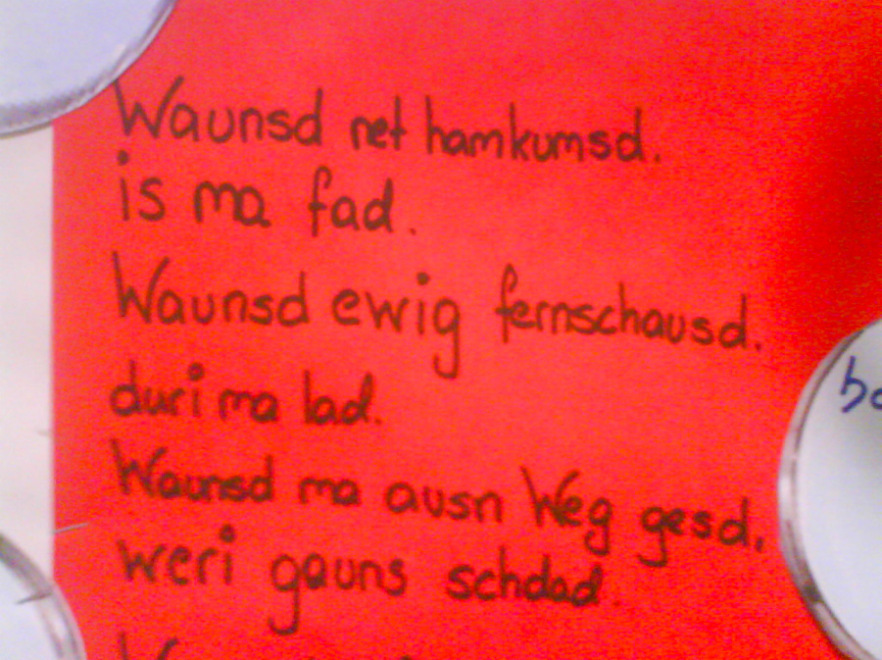 Waunsd net hamkumsd.
is ma fad.
Waunsd ewig fernschausd.
duri ma lad.
Waunsd ma ausn Weg gesd.
weri gauns schdad.